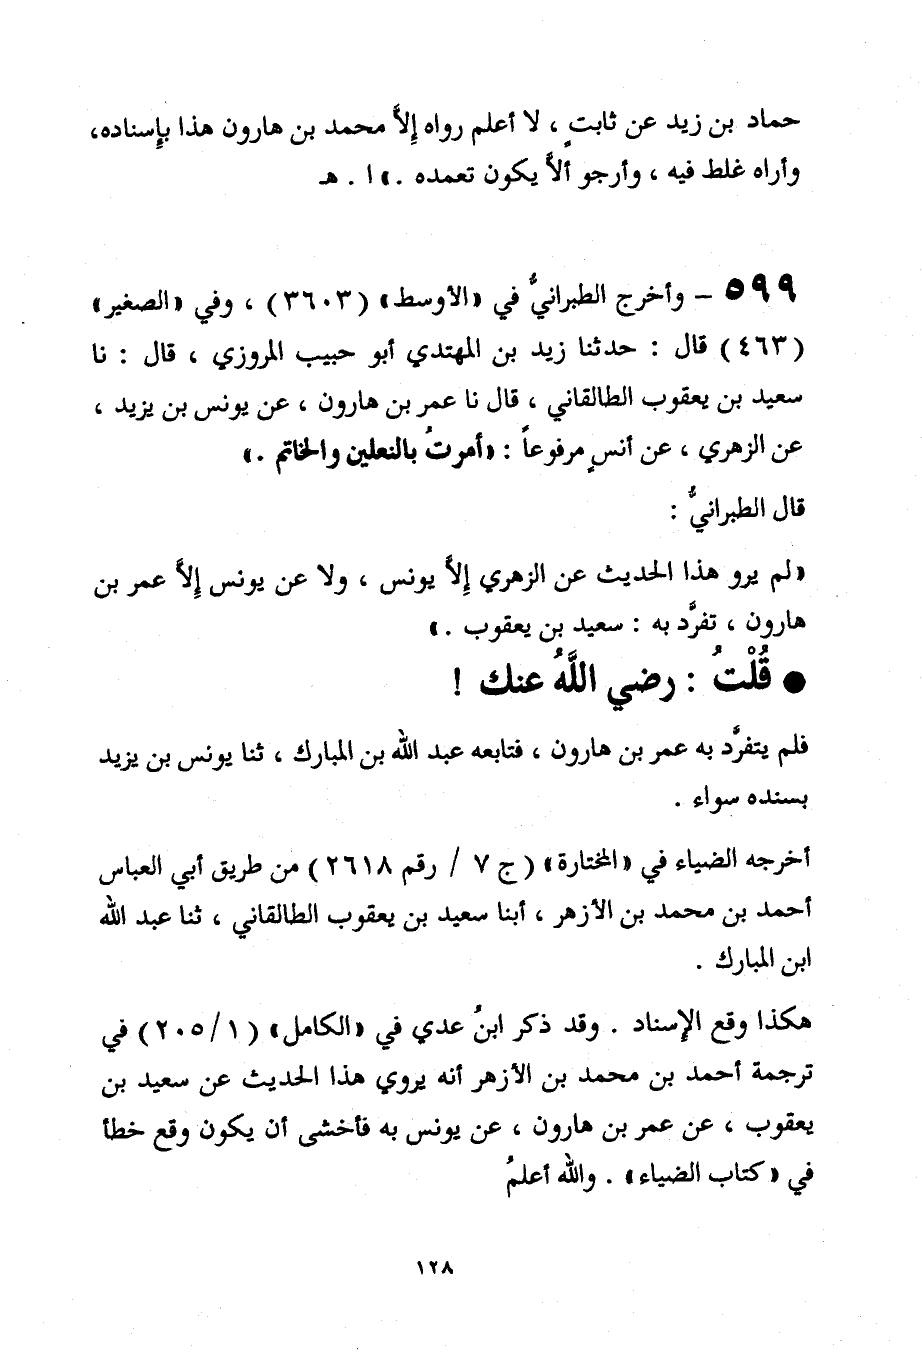 حماد بن زيد عن ثابتٍ ، لا أعلم رواه إلاَّ محمد بن هارون هذا بإسناده،
وأراه غلط فيه ، وأرجو ألاَّ يكون تعمده .» ا . هـ
٥٩٩ – وأخرج الطبرانيُّ في «الأوسط» (٣٦٠٣) ، وفي «الصغير»
(٤٦٣) قال : حدثنا زيد بن المهتدي أبو حبيب المروزي ، قال : نا
سعيد بن يعقوب الطالقاني ، قال نا عمر بن هارون ، عن يونس بن يزيد ،
عن الزهري ، عن أنسٍ مرفوعاً : «أمرتُ بالنعلين والخاتم .»
قال الطبرانيُّ :
«لم يرو هذا الحديث عن الزهري إلاَّ يونس ، ولا عن يونس إلاَّ عمر بن
هارون ، تفرَّد به : سعيد بن يعقوب .»
● قُلْتُ : رضي اللَّهُ عنك !
فلم يتفرَّد به عمر بن هارون ، فتابعه عبد الله بن المبارك ، ثنا يونس بن يزيد
بسنده سواء .
أخرجه الضياء في «المختارة» (ج ٧ / رقم ٢٦١٨) من طريق أبي العباس
أحمد بن محمد بن الأزهر ، أبنا سعيد بن يعقوب الطالقاني ، ثنا عبد الله
ابن المبارك .
هكذا وقع الإسناد . وقد ذكر ابنُ عدي في «الكامل» (٢٠٥/١) في
ترجمة أحمد بن محمد بن الأزهر أنه يروي هذا الحديث عن سعيد بن
يعقوب ، عن عمر بن هارون ، عن يونس به فأخشى أن يكون وقع خطأ
في «كتاب الضياء» . والله أعلمُ
١٢٨